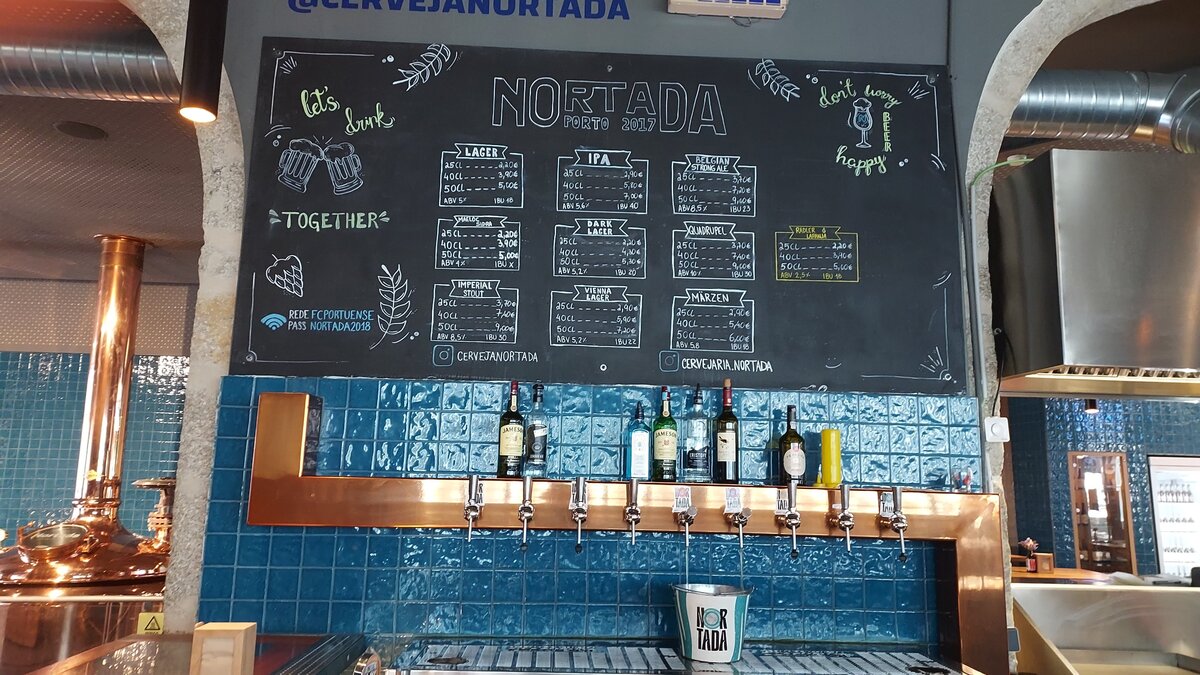 @CERVEJANORTADA
let's
drink
TOGETHER
NORTADA
PORTO 2017
don't worry
BEER
happy
LAGER
25CL ---- 2,20€
40CL ---- 3,90€
50CL ---- 5,00€
ABV 5% IBU 18
IPA
25CL ---- 2,90€
40CL ---- 5,80€
50CL ---- 7,00€
ABV 5,6% IBU 40
BELGIAN
STRONG ALE
25CL ---- 3,70€
40CL ---- 7,20€
50CL ---- 9,00€
ABV 8,5% IBU 23
25CL ---- 2,20€
40CL ---- 3,90€
50CL ---- 5,00€
ABV 4% IBU X
DARK
LAGER
25CL ---- 2,20€
40CL ---- 4,30€
50CL ---- 5,30€
ABV 5,2% IBU 20
QUADRUPEL
25CL ---- 3,70€
40CL ---- 7,40€
50CL ---- 9,00€
ABV 10% IBU 30
RADLER
25CL ---- 2,20€
40CL ---- 3,90€
50CL ---- 5,00€
ABV 2,5%
IMPERIAL
STOUT
25CL ---- 3,70€
40CL ---- 7,40€
50CL ---- 9,00€
ABV 8,5% IBU 30
VIENNA
LAGER
25CL ---- 2,90€
40CL ---- 5,90€
50CL ---- 7,20€
ABV 5,2% IBU 22
MÄRZEN
25CL ---- 2,90€
40CL ---- 5,40€
50CL ---- 6,60€
ABV 5,8 IBU 18
REDE FCPORTUENSE
PASS NORTADA2018
CERVEJANORTADA
CERVEJARIA.NORTADA
JAMESON
JAMESON
NOR
TADA